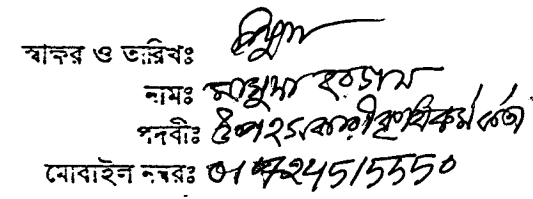 স্বাক্ষর ও তারিখঃ
নামঃ মাসুদা বেগম
পদবীঃ উপসহকারী কৃষি কর্মকর্তা
মোবাইল নম্বরঃ 01724515550